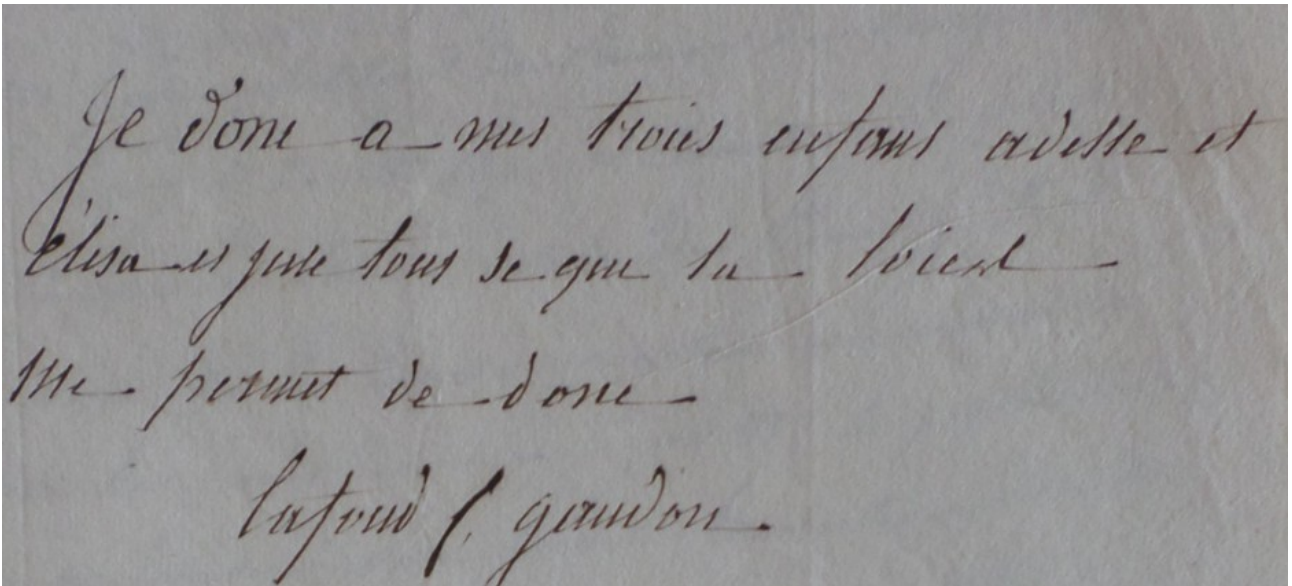 Je done a mes troies enfans adelle et
élisa et jule tous se que la loiest
me permet de done
lafond f. gaudon